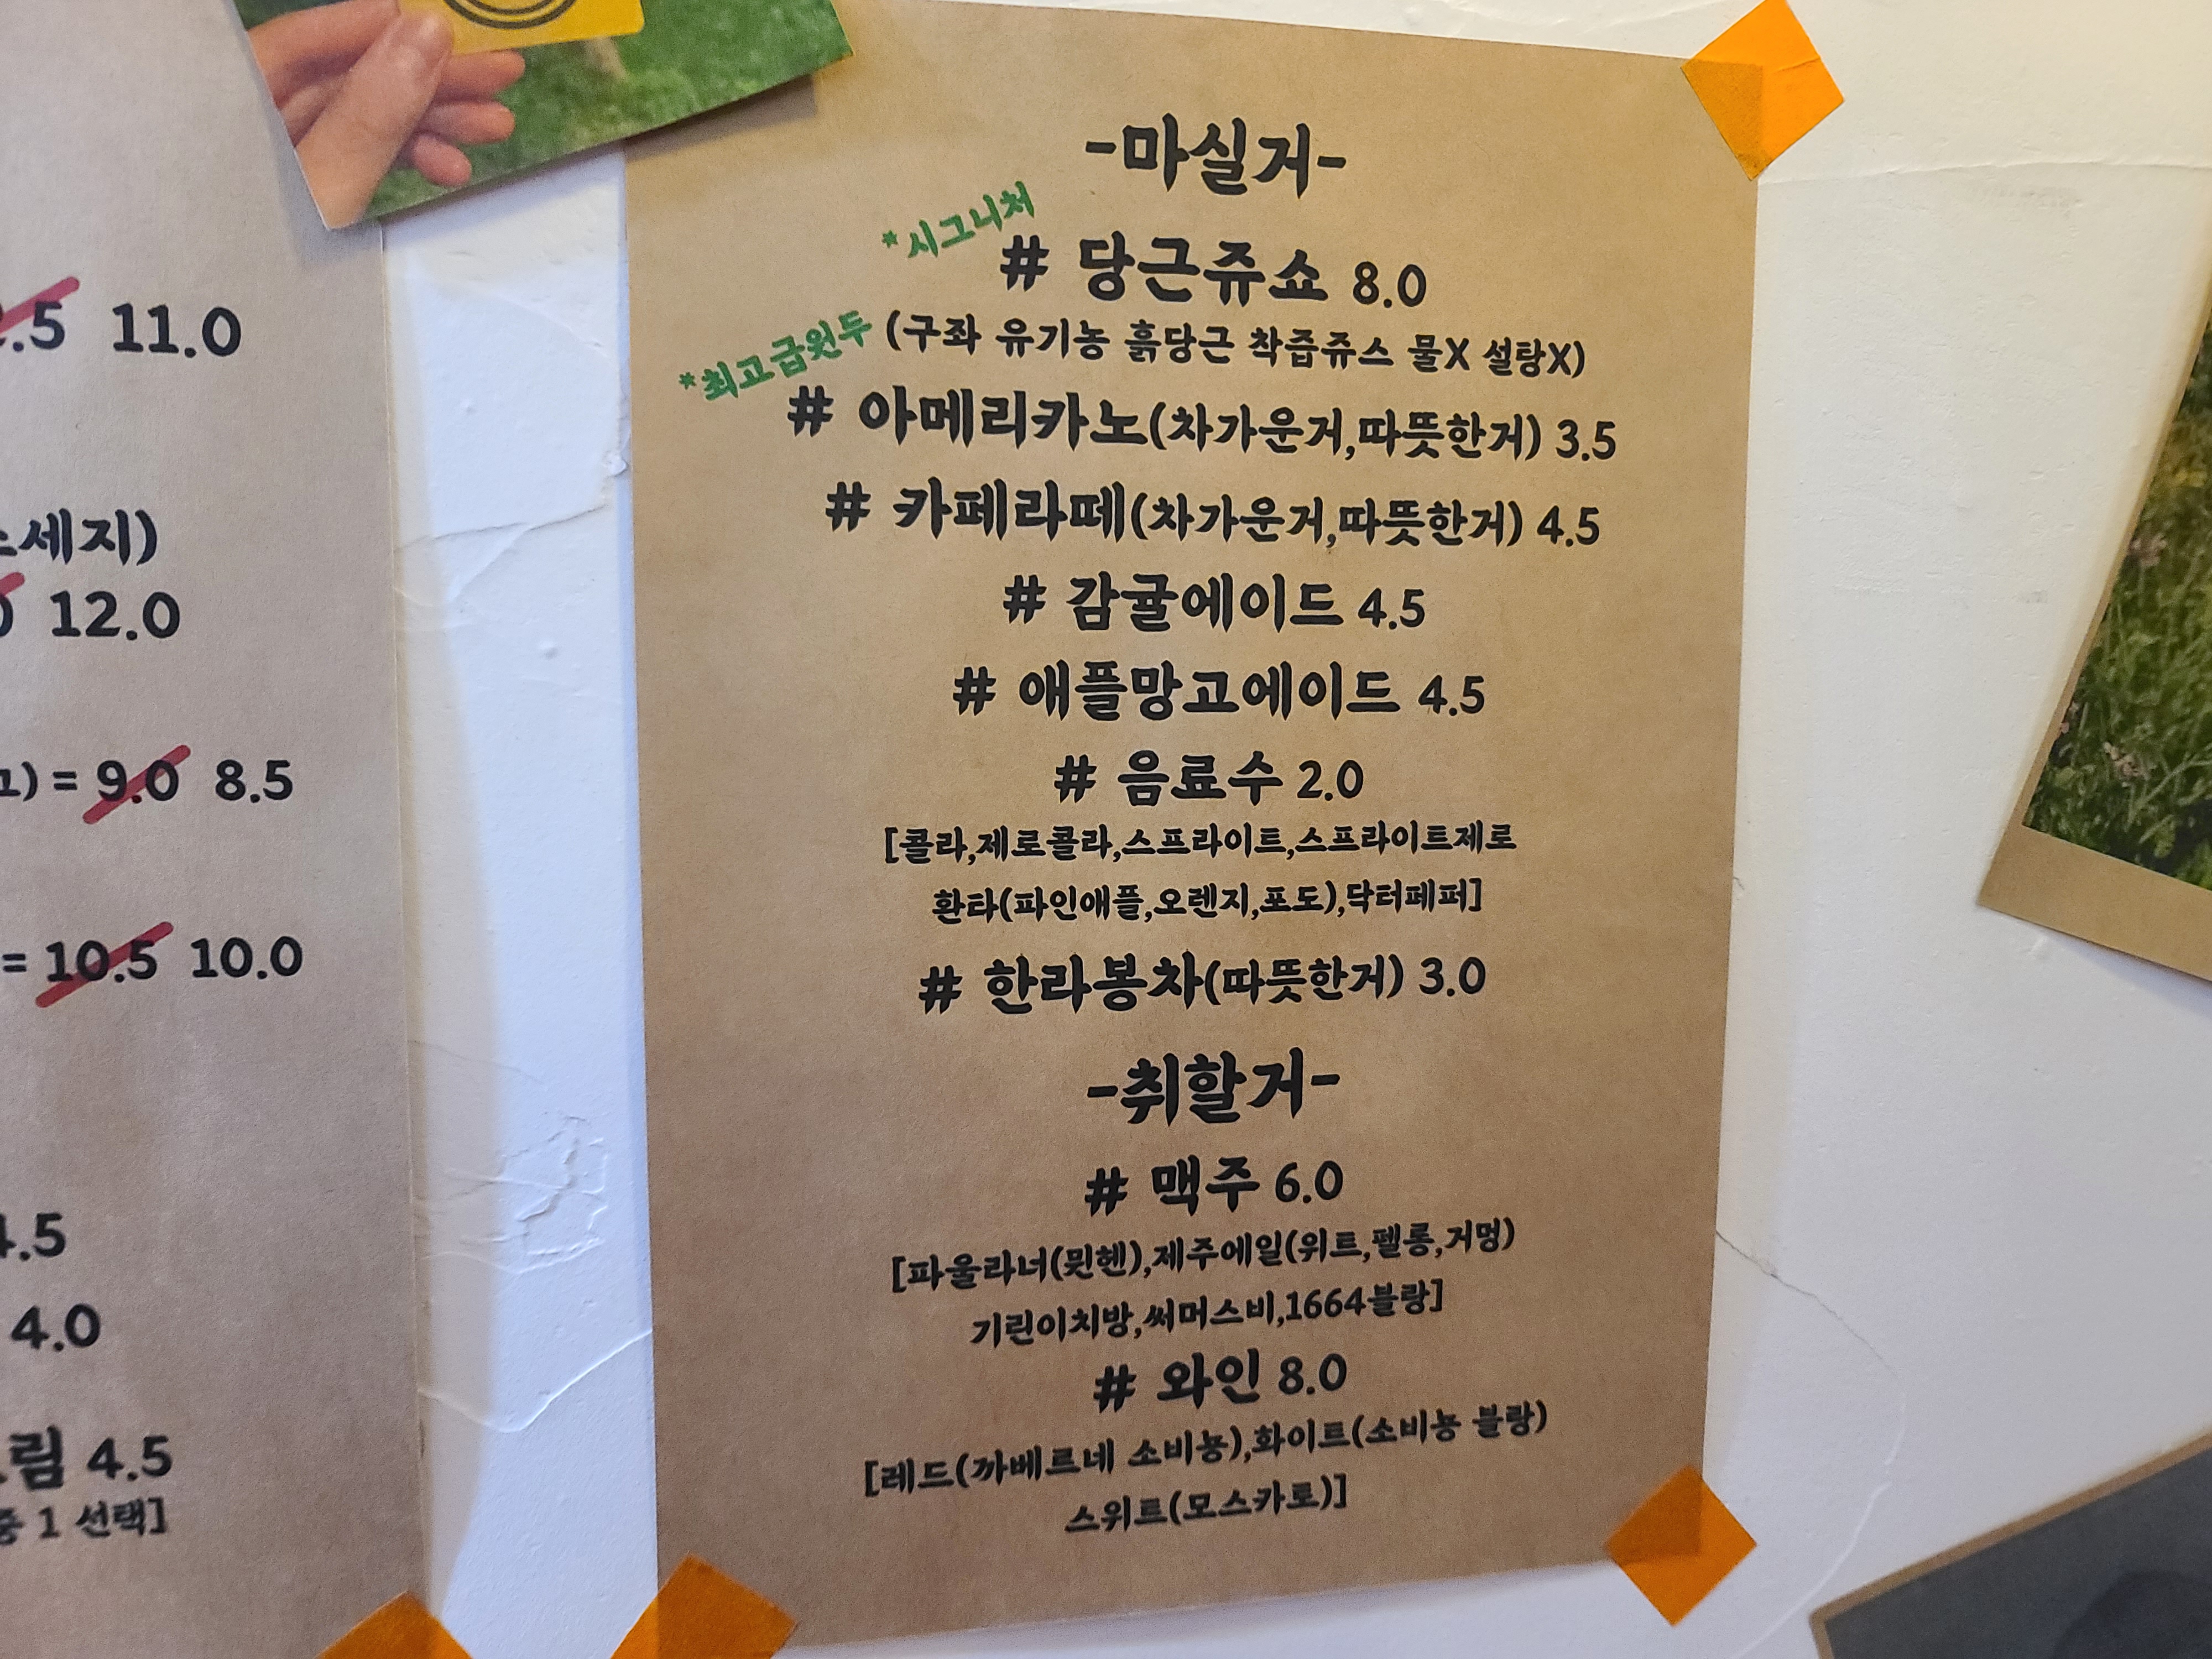 11.0
세지)
12.0
= 9.0 8.5
= 10.5 10.0
4.0
림 4.5
1 선택]
-마실거-
*시그니처
# 당근쥬쇼 8.0
*최고급원두 (구좌 유기농 흙당근 착즙쥬스 물X 설탕X)
# 아메리카노(차가운거,따뜻한거) 3.5
# 카페라떼(차가운거,따뜻한거) 4.5
# 감귤에이드 4.5
# 애플망고에이드 4.5
# 음료수 2.0
[콜라,제로콜라,스프라이트,스프라이트제로
환타(파인애플,오렌지,포도),닥터페퍼]
# 한라봉차(따뜻한거) 3.0
-취할거-
# 맥주 6.0
[파울라너(뮌헨),제주에일(위트,펠롱,거멍)
기린이치방,써머스비,1664블랑]
# 와인 8.0
[레드(까베르네 소비뇽),화이트(소비뇽 블랑)
스위트(모스카토)]